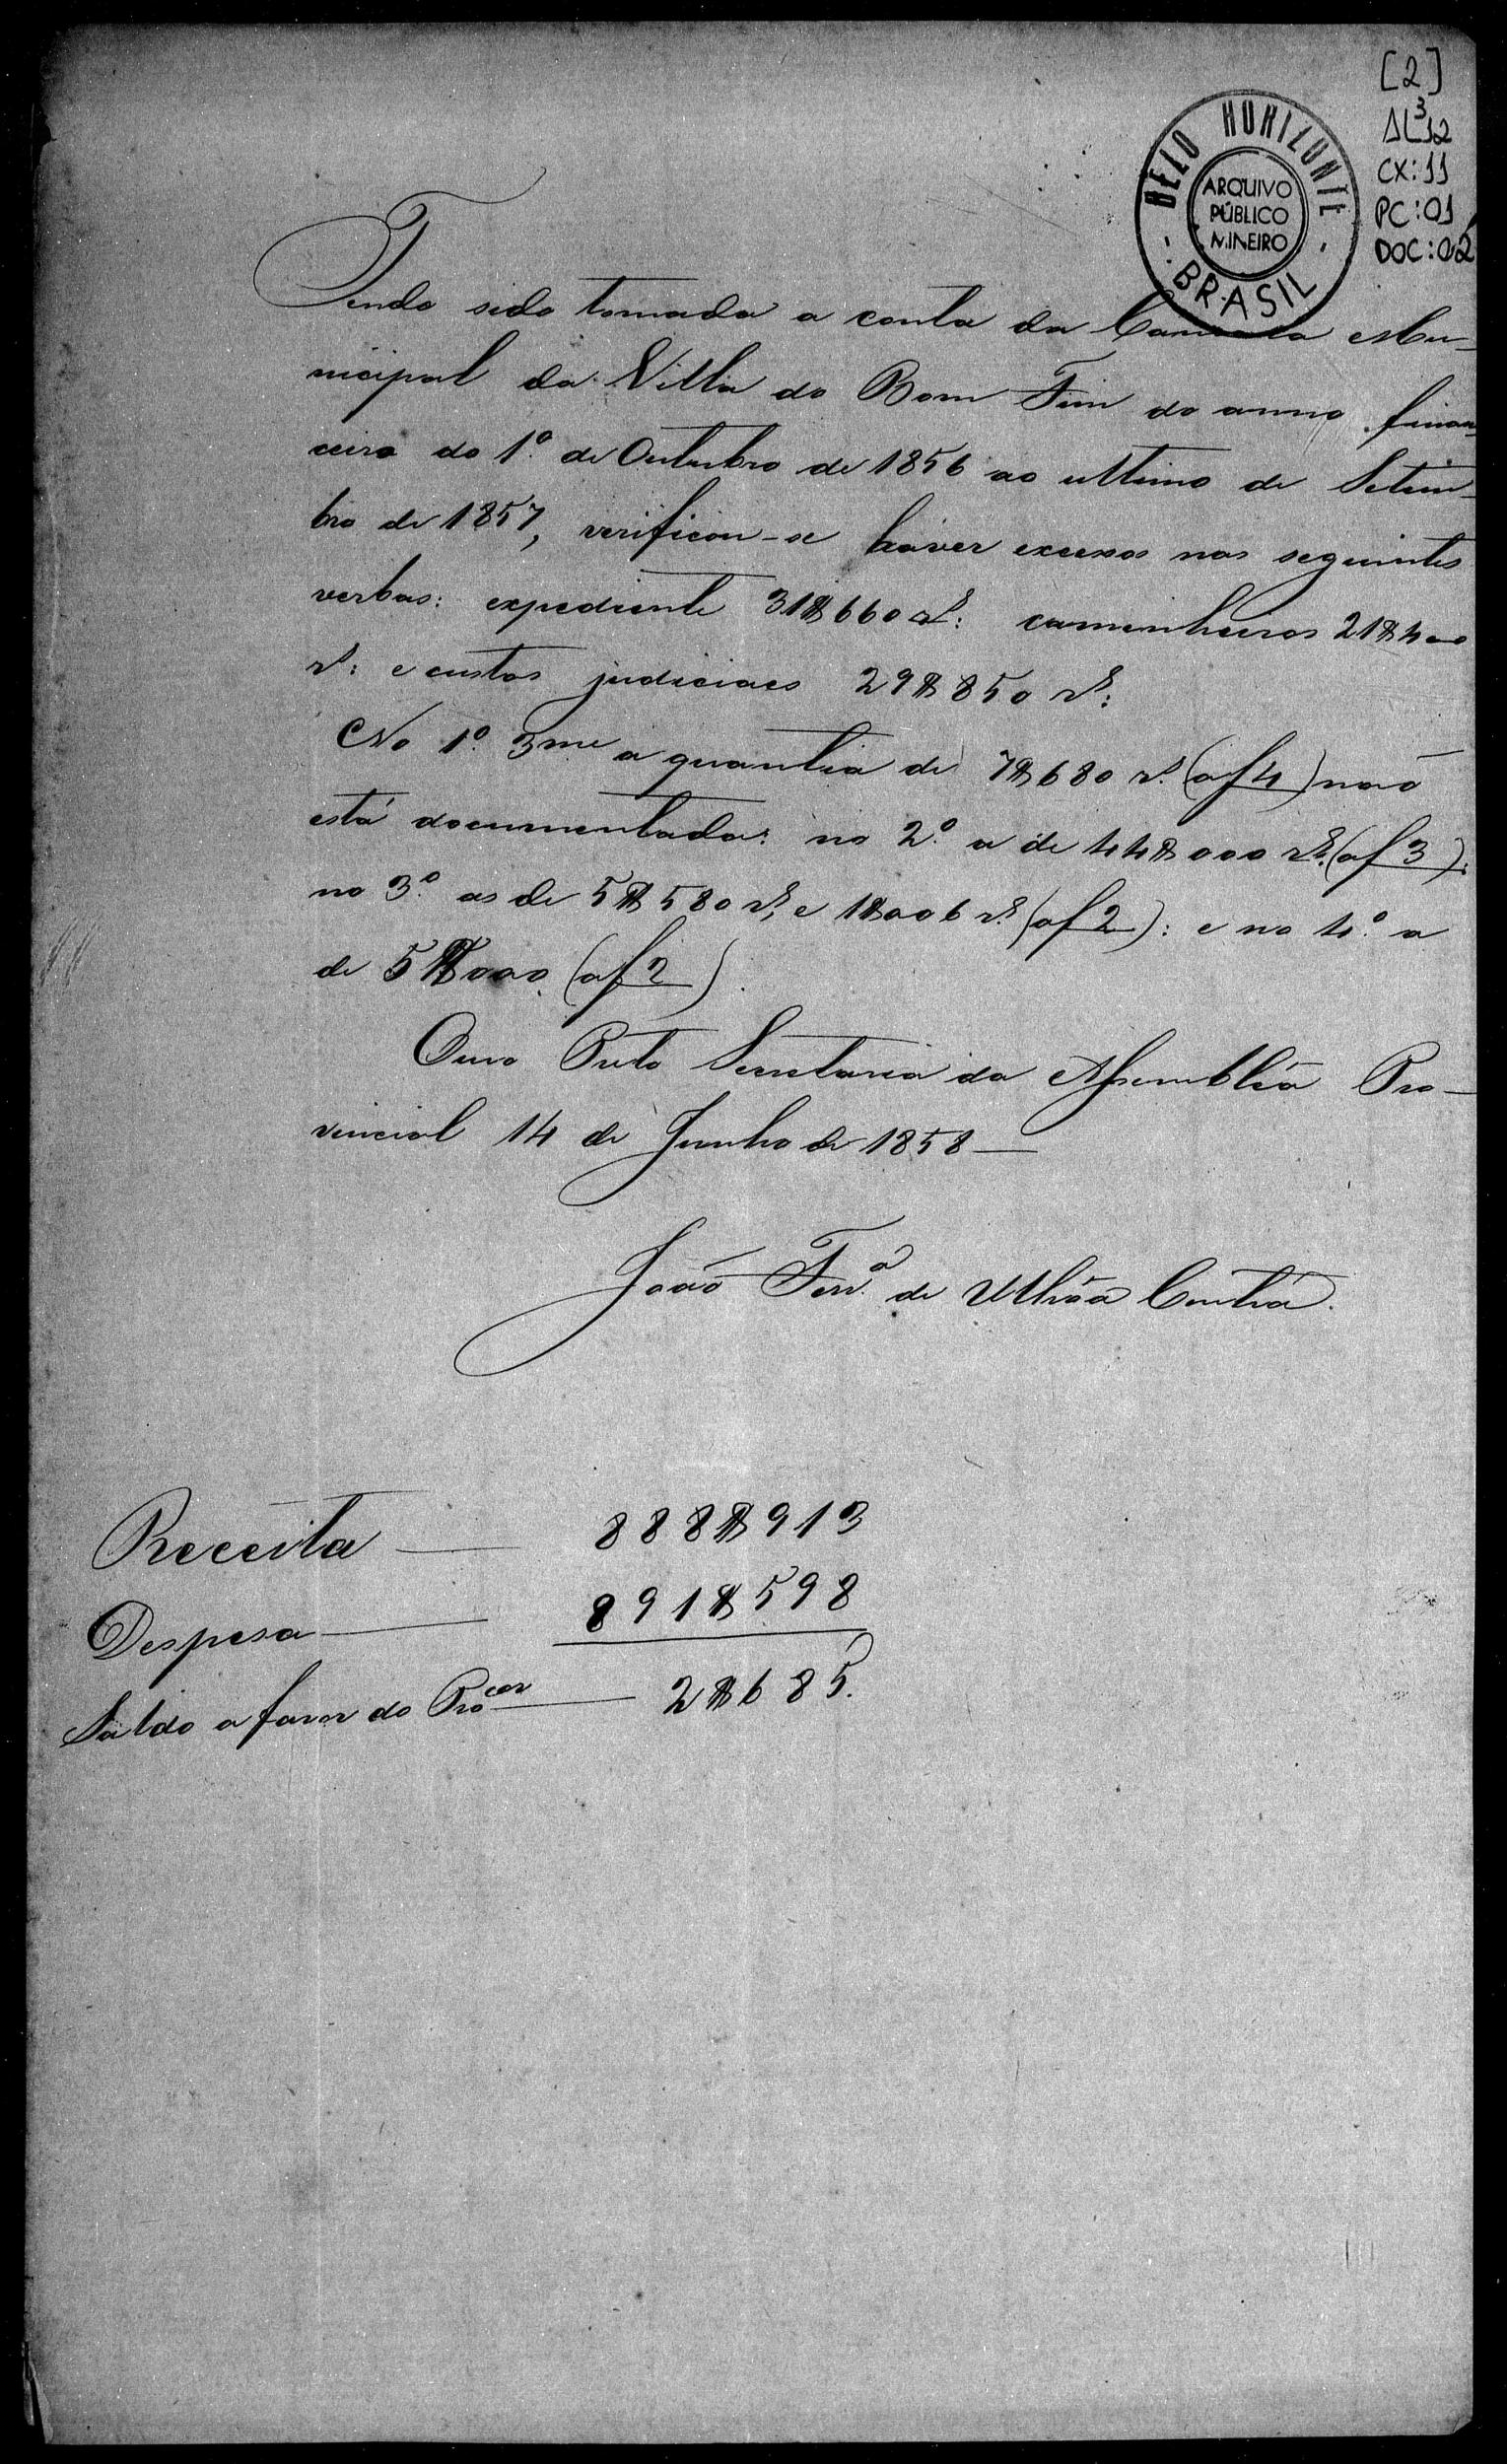 [2]
AL³12
CX: 11
PC: 01
DOC: 02
BELO HORIZONTE
ARQUIVO
PÚBLICO
MINEIRO
- BRASIL -
Tendo sido tomada a conta da Camara Mu-
nicipal da Villa do Bom Fim do anno finan
ceiro do 1º de Outubro de 1856 ao ultimo de Setem-
bro de 1857, verificou-se haver excessos nas seguintes
verbas: expediente 31$660 rs: caminheiros 21$400
rs: e custas judiciaes 29$850 rs:
No 1º 3me a quantia de 7$680 rs (a f 4) não
está documentada: no 2º a de 44$000 rs. (a f 3):
no 3º as de 5$580 rs, e 1$006 rs (a f 2): e no 4º a
de 5$000 (a f 2).
Ouro Preto Secretaria da Assembléa Pro-
vincial 14 de Junho de 1858 —
João Ferª de Ulhôa Cintra.
Receita — 888$913
Despesa — 891$598
Saldo a favor do Procor — 2$685.